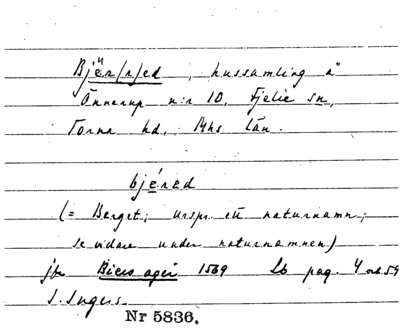 Bjër/r/ed, hussamling å
Önnerup n:r 10, Fjelie sn,
Torna hd, Mhs län.
bjéred
(= Berget; urspr. ett naturnamn;
se vidare under naturnamnen)
jfr Biers ager 1569 Lb pag. 4 o. 54
S. Ingers.
Nr 5836.